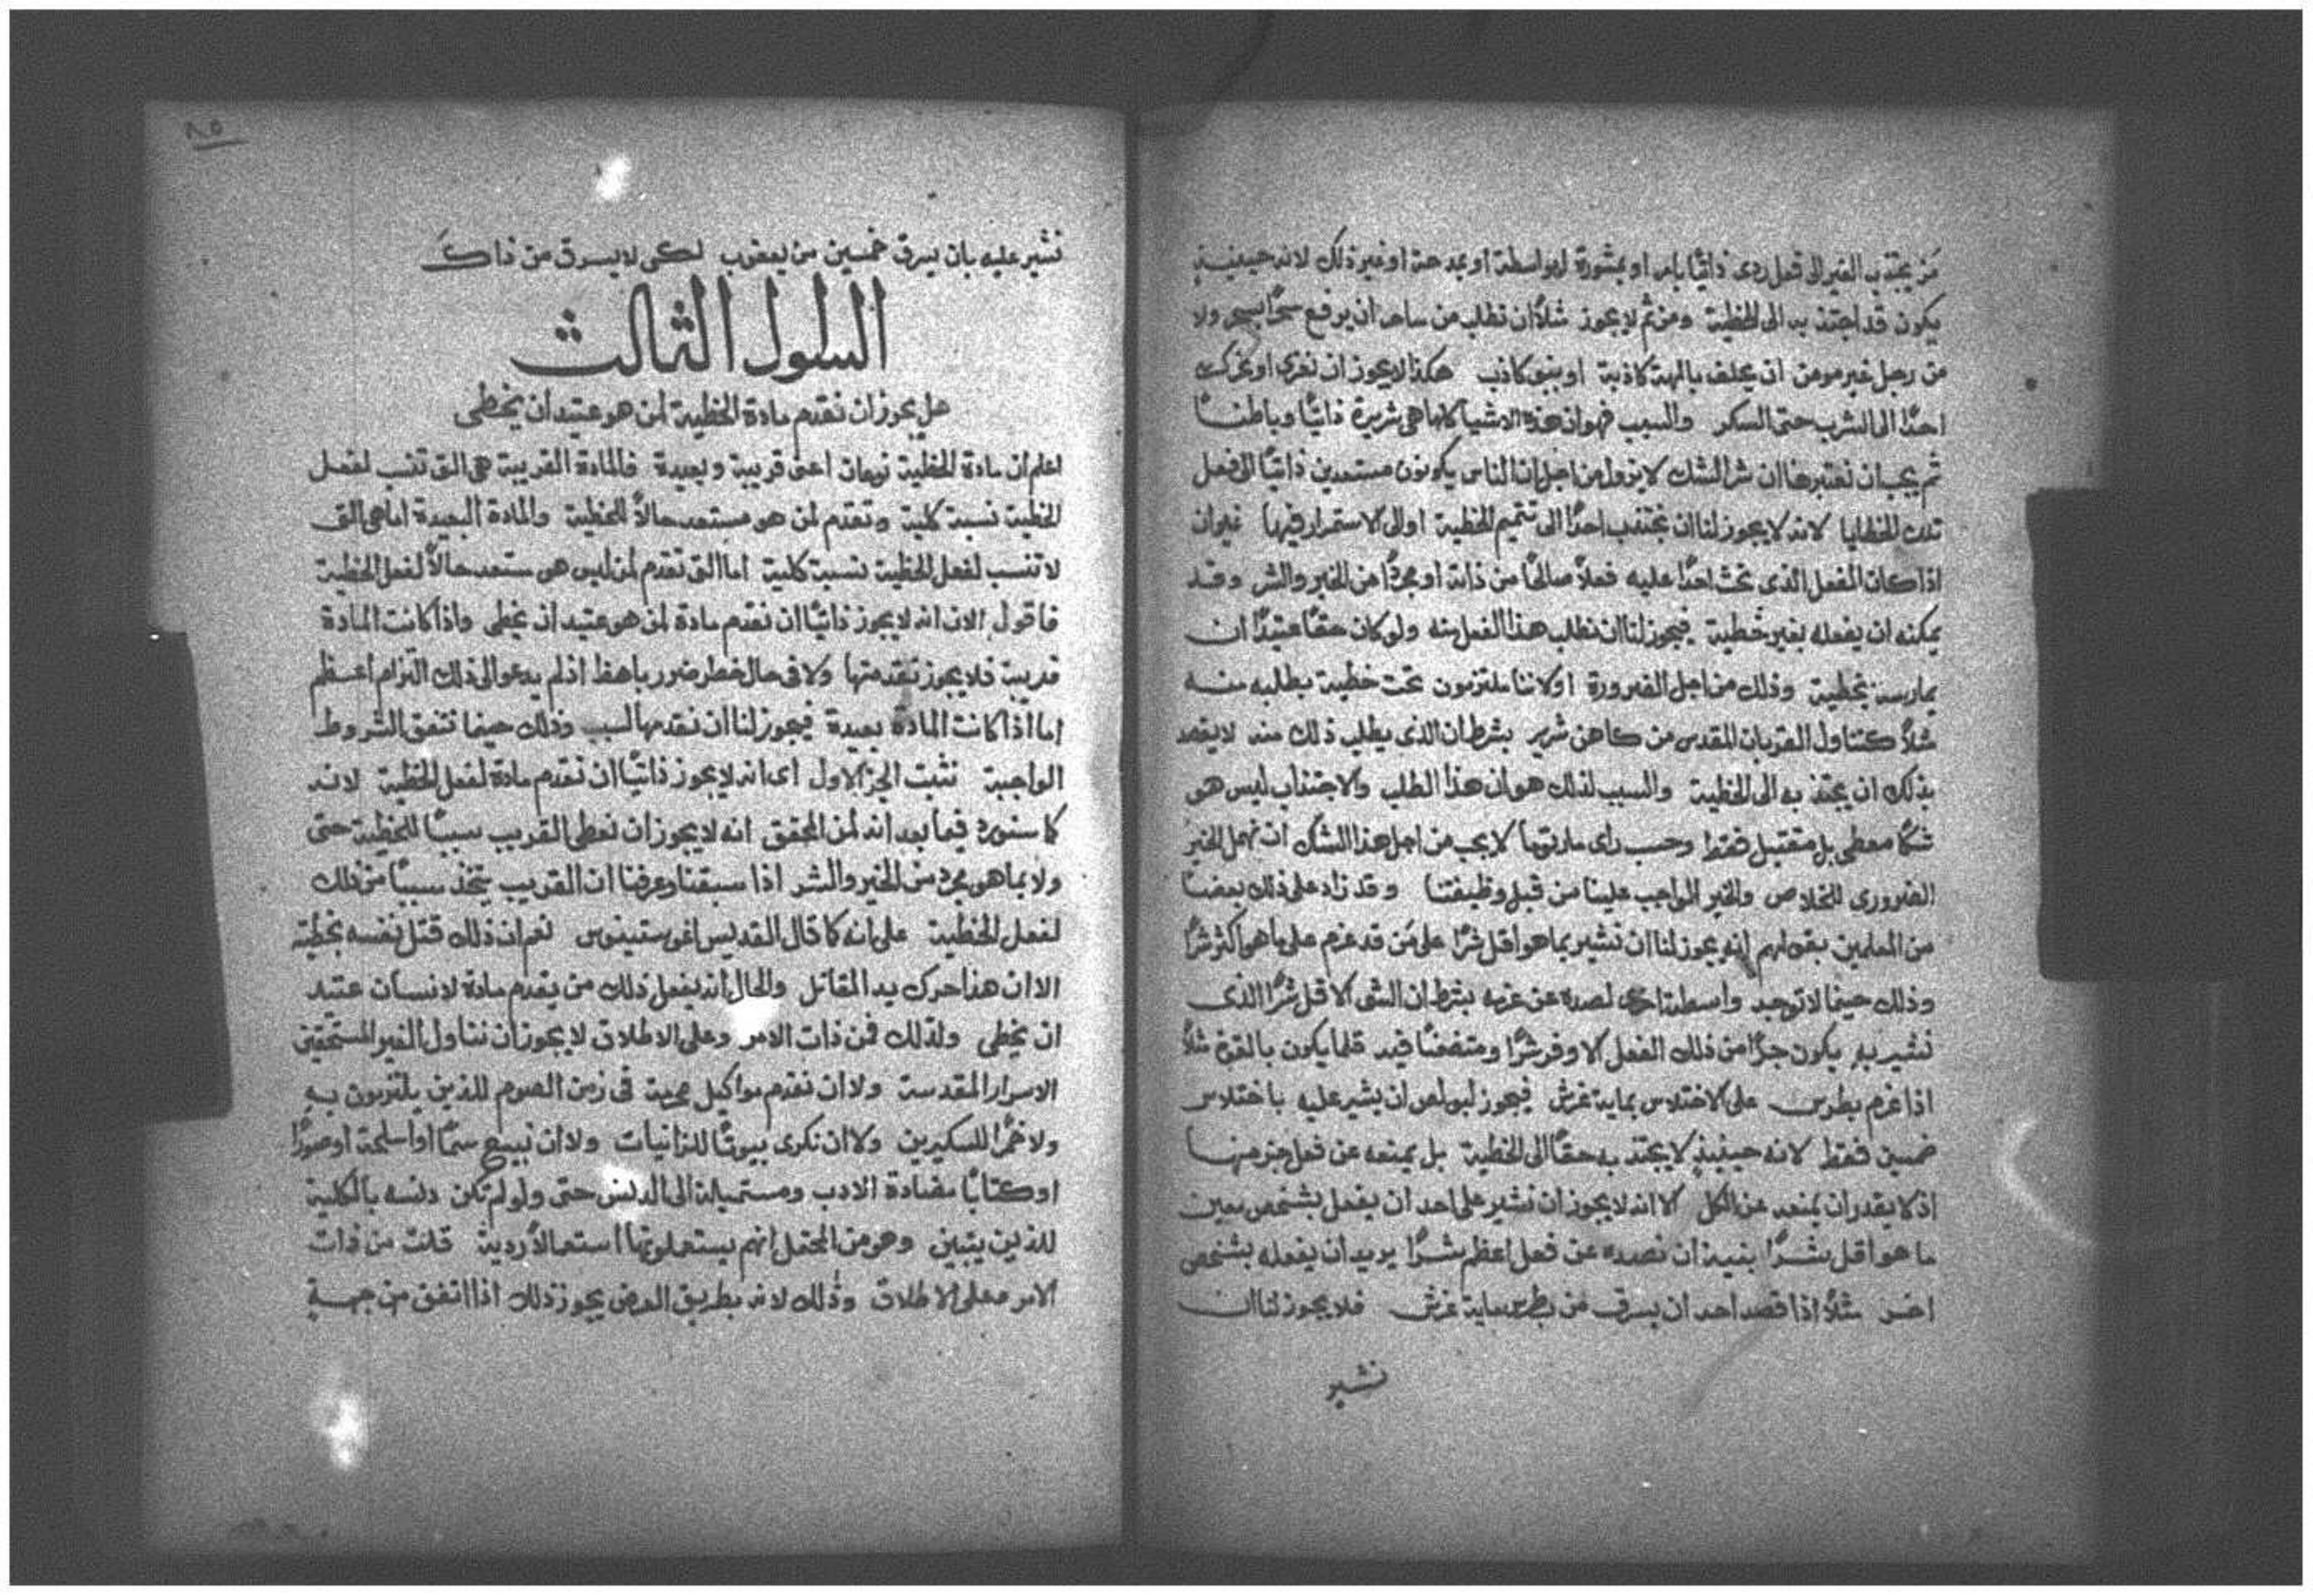 من يجتذب الغير الى فعل ردى ذاتيًا بامر او بمشورة او بواسطة او بمدحة او غير ذلك لانه حينيذٍ
يكون قد اجتذبه الى الخطية ومن ثم لا يجوز مثلاً ان نطلب من ساحر ان يرفع سحرًا بسحر ولا
من رجل غير مومن ان يحلف بالهة كاذبة او بنبى كاذب هكذا لا يجوز ان نغرى او نحرك
احدًا الى الشرب حتى السكر والسبب فهو ان هذه الاشيا كلها هى شريرة ذاتيًا وباطنًا
ثم يجب ان نعتبر هنا ان شر الشك لا يزول من اجل ان الناس يكونون مستعدين ذاتيًا الى فعل
تلك الخطايا لانه لا يجوز لنا ان نجتذب احدًا الى تتميم الخطية او الى الاستمرار فيها غير ان
اذا كان الفعل الذى نحث احدًا عليه فعلاً صالحًا من ذاته او مجردًا من الخير والشر وقد
يمكنه ان يفعله بغير خطية فيجوز لنا ان نطلب هذا الفعل منه ولو كان حقًا عتيدًا ان
يمارسه بخطية وذلك من اجل الضرورة او لاننا ملتزمون تحت خطية بطلبه منه
مثلاً كتناول القربان المقدس من كاهن شرير بشرط ان الذى يطلب ذلك منه لا يقصد
بذلك ان يجتذبه الى الخطية والسبب لذلك هو ان هذا الطلب والاجتذاب ليس هو
شكًا معطى بل مقتبل فقط وحسب راى مارتوما لا يجب من اجل هذا الشك ان نهمل الخير
الضرورى للخلاص والخير الواجب علينا من قبل وظيفتنا وقد زاد على ذلك بعضًا
من المعلمين بقولهم انه يجوز لنا ان نشير بما هو اقل شرًا على من قد عزم على ما هو اكثر شرًا
وذلك حينما لا توجد واسطة اخرى لصده عن عزمه بشرط ان الشى الاقل شرًا الذى
نشير به يكون جزًا من ذلك الفعل الاوفر شرًا ومتضمنًا فيه قلما يكون بالقوة مثلاً
اذا عزم بطرس على الاختلاس بماية غرش فيجوز لبولص ان يشير عليه باختلاس
خمسين فقط لانه حينيذٍ لا يجتذبه حقًا الى الخطية بل يمنعه عن فعل جزء منها
اذ لا يقدر ان يمنعه عن الكل الا انه لا يجوز ان نشير على احد ان يفعل بشخص معين
ما هو اقل شرًا بنية ان نصده عن فعل اعظم شرًا يريد ان يفعله بشخص
اخر مثلاً اذا قصد احد ان يسرق من بطرس ماية غرش فلا يجوز لنا ان
نشير
٨٥
نشير عليه بان يسرق خمسين من يعقوب لكى لا يسرق من ذاك
السلول الثالث
هل يجوز ان نقدم مادة الخطية لمن هو عتيد ان يخطى
اعلم ان مادة الخطية نوعان اعنى قريبة وبعيدة فالمادة القريبة هى التى تنسب لفعل
الخطية نسبة كلية وتقدم لمن هو مستعد حالاً للخطية والمادة البعيدة اما هى التى
لا تنسب لفعل الخطية نسبة كلية اما التى تقدم لمن ليس هو مستعد حالاً لفعل الخطية
فاقول الان انه لا يجوز ذاتيًا ان نقدم مادة لمن هو عتيد ان يخطى واذا كانت المادة
قريبة فلا يجوز تقدمتها ولا فى حال خطر ضرر باهظ اذ لم يدعو الى ذلك التزام اعظم
اما اذا كانت المادة بعيدة فيجوز لنا ان نقدمها لسبب وذلك حينما تتفق الشروط
الواجبة نثبت الجز الاول اى انه لا يجوز ذاتيًا ان نقدم مادة لفعل الخطية لانه
كما سنورد فيما بعد انه لمن المحقق انه لا يجوز ان نعطى القريب سببًا للخطية حتى
ولا بما هو مجرد من الخير والشر اذا سبقنا وعرفنا ان القريب يتخذ سببًا من ذلك
لفعل الخطية على انه كما قال القديس اغوستينوس نعم ان ذلك قتل نفسه بخطيته
الا ان هذا حرك يد القاتل والحال انه يفعل ذلك من يقدم مادة لانسان عتيد
ان يخطى ولذلك فمن ذات الامر وعلى الاطلاق لا يجوز ان نناول الغير المستحقين
الاسرار المقدسة ولا ان نقدم مواكيل محرمة فى زمن الصوم للذين يلتزمون به
ولا خمرًا للسكيرين ولا ان نكرى بيوتًا للزانيات ولا ان نبيع سمًا او اسلحة او صورًا
او كتابًا مضادة الادب ومستميلة الى الدنس حتى ولو لم تكن دنسه بالكلية
للذين يتبين وهو من المحتمل انهم يستعملونها استعمالاً ردية قلت من ذات
الامر وعلى الاطلاق وذلك لانه بطريق العرض يجوز ذلك اذا اتفق من جهة